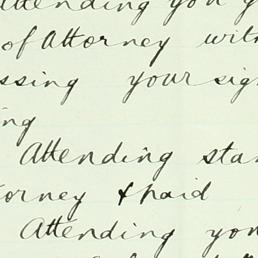 Attending you
of Attorney wit
ssing your sig
ng
Attending sta
orney & paid
Attending you